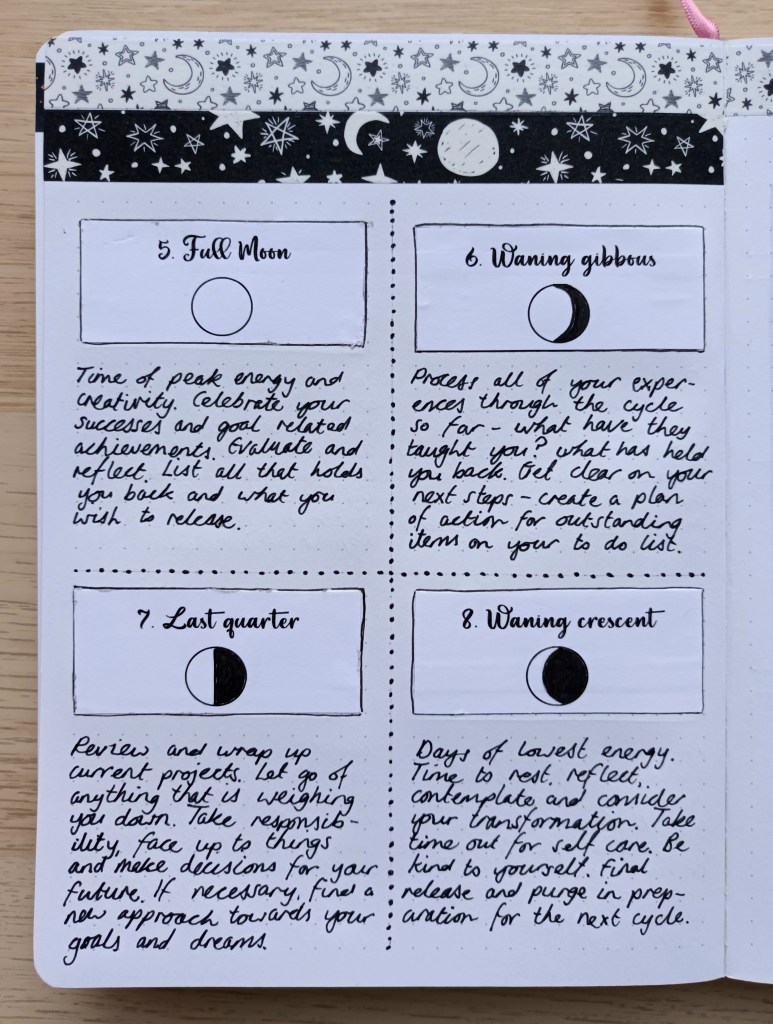 5. Full Moon
Time of peak energy and
creativity. Celebrate your
successes and goal related
achievements. Evaluate and
reflect. List all that holds
you back and what you
wish to release.
6. Waning gibbous
Process all of your exper-
ences through the cycle
so far - what have they
taught you? what has held
you back. Get clear on your
next steps - create a plan
of action for outstanding
items on your to do list.
7. Last quarter
Review and wrap up
current projects. Let go of
anything that is weighing
you down. Take responsib-
ility, face up to things
and make decisions for your
future. If necessary, find a
new approach towards your
goals and dreams.
8. Waning crescent
Days of lowest energy.
Time to rest, reflect,
contemplate and consider
your transformation. Take
time out for self care. Be
kind to yourself. Final
release and purge in prep-
aration for the next cycle.